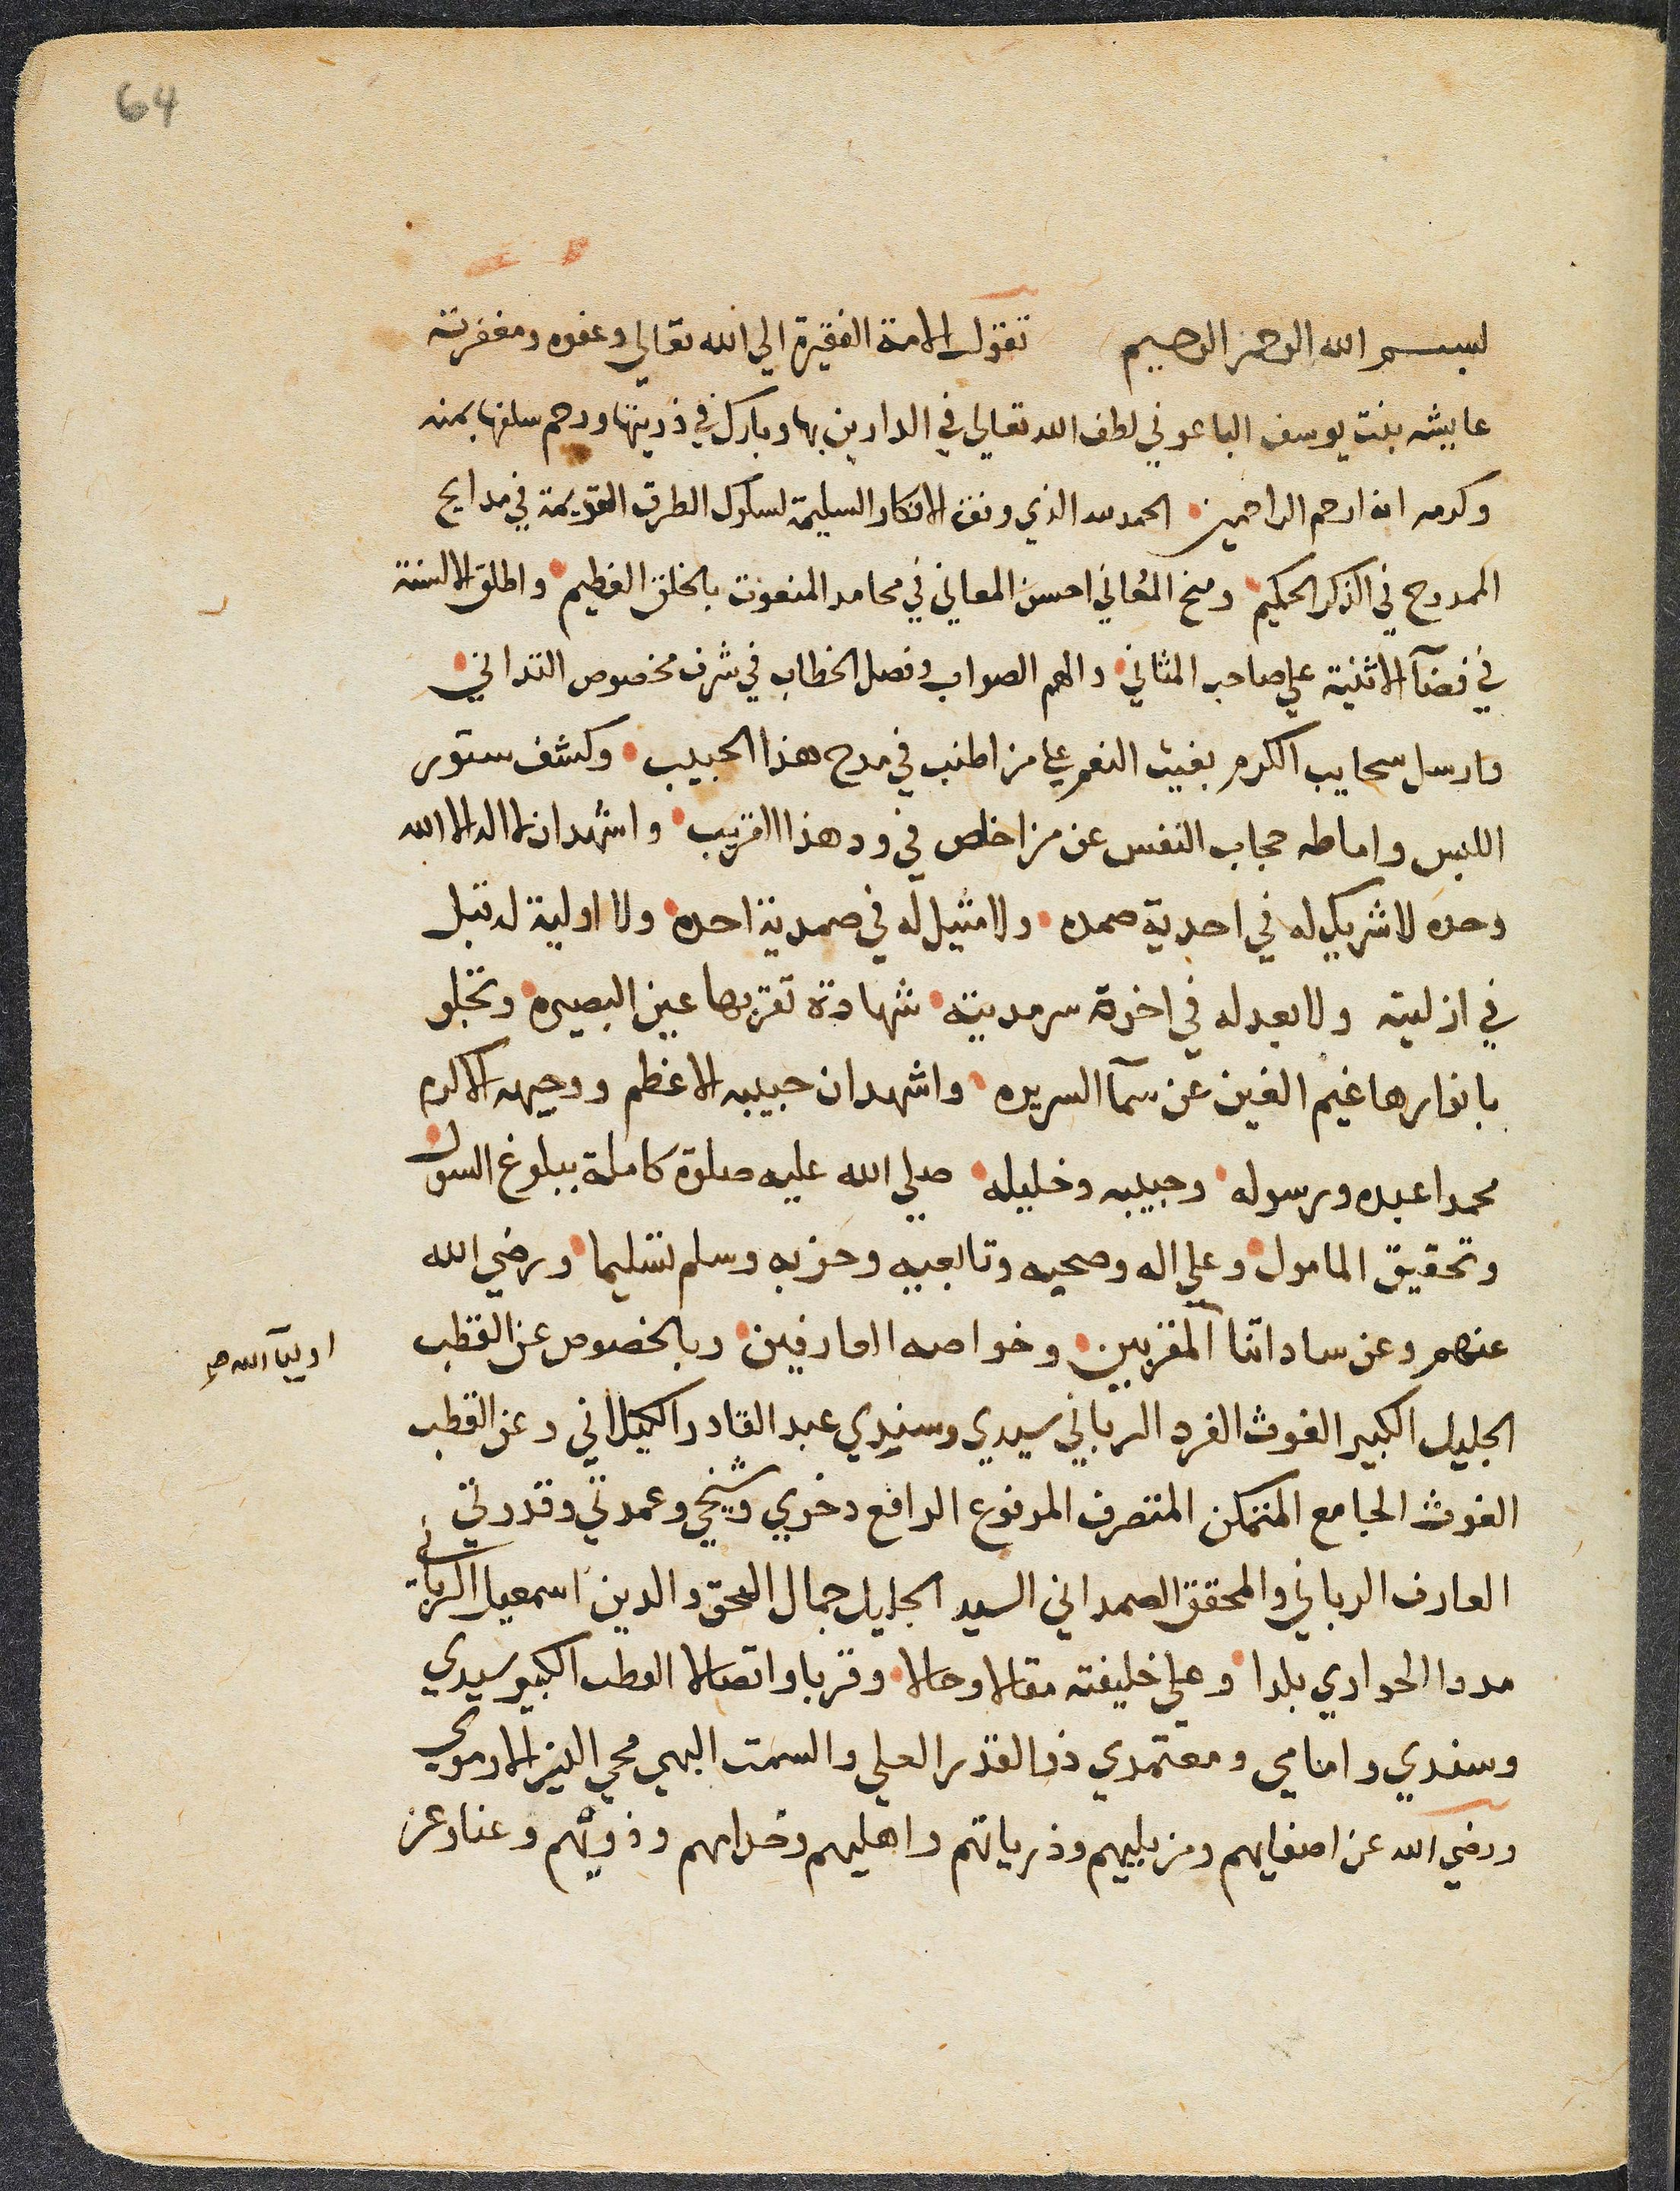 64
بسم الله الرحمن الرحيم تقول الامة الفقيرة الي الله تعالي وعفوه ومغفرته
عايشه بنت يوسف الباعوني لطف الله تعالي في الدارين بها وبارك في ذريتها ورحم سلفها بمنه
وكرمه انه ارحم الراحمين الحمد لله الذي وفق الافكار السليمة لسلوك الطرق القويمة في مدايح
الممدوح في الذكر الحكيم ومنح المُعاني احسن المعاني في محامد المنعوت بالخلق العظيم واطلق الالسنة
في فضآ الاثنية علي صاحب المثاني والهم الصواب وفصل الخطاب في شرف مخصوص التداني
وارسل سحايب الكرم بغيث النعم علي من اطنب في مدح هذا الحبيب وكشف ستور
اللبس واماطه حجاب النفس عن من اخلص في ود هذا القريب واشهد ان لا اله الا الله
وحده لا شريك له في احدية صمده ولا مثيل له في صمدية احده ولا اولية له قبل
في ازليته ولا بعد له في اخرة سرمديته شهادة تقر بها عين البصيره وتجلو
بانوارها غيم الغين عن سمآ السريره واشهد ان حبيبه الاعظم ووجيهه الاكرم
محمدا عبده ورسوله وحبيبه وخليله صلي الله عليه صلوة كاملة ببلوغ السول
وتحقيق المامول وعلي اله وصحبه وتابعيه وحزبه وسلم تسليما ورضي الله
عنهم وعن ساداتنا المقربين وخواصه العارفين وبالخصوص عن القطب
اوليآ الله صح
الجليل الكبير الغوث الفرد الرباني سيدي وسندي عبد القادر الكيلاني وعن القطب
الغوث الجامع المتمكن المتصرف المرفوع الرافع ذخري وشيخي وعمدتي وقدوتي
العارف الرباني والمحقق الصمداني السيد الجليل جمال الحق والدين اسمعيل الرباني
مددا الحواري بلدا وعلي خليفته مقالا وحالا وقربا واتصالا القطب الكبير سيدي
وسندي وامامي ومعتمدي ذو القدر العلي والسمت البهي محي الدين الارموي
ورضي الله عن اصفايهم ومن يليهم وذرياتهم واهليهم وخدامهم وذويهم وعنا وعن